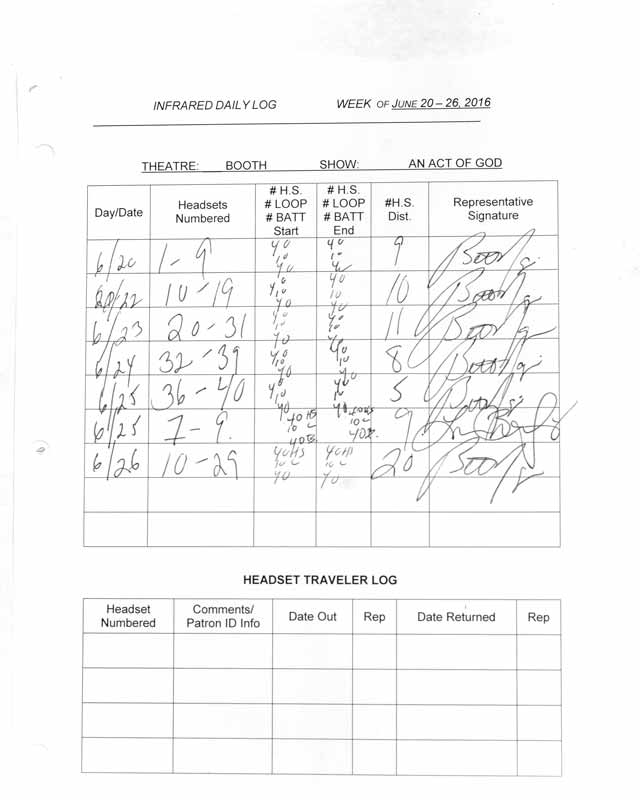 INFRARED DAILY LOG WEEK OF JUNE 20 – 26, 2016
THEATRE: BOOTH SHOW: AN ACT OF GOD
Day/Date Headsets Numbered # H.S. # LOOP # BATT Start # H.S. # LOOP # BATT End #H.S. Dist. Representative Signature
6/20 1 - 9 40 10 40 40 10 9
/22 10 - 19 40 10 40 40 10 40 10
6/23 20 - 31 40 10 40 40 10 40 11
6/24 32 - 39 40 10 40 40 10 40 8
6/25 36 - 40 40 10 40 40 10 40 5
6/25 7 - 9. 40 HS 10 L 40 B. 40 HS 10 L 40 B. 9
6/26 10 - 29 40HS 10 L 40 40HS 10 L 40 20
HEADSET TRAVELER LOG
Headset Numbered Comments/ Patron ID Info Date Out Rep Date Returned Rep